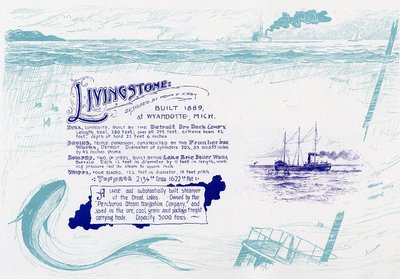 LIVINGSTONE:
DESIGNED BY FRANK E. KIRBY
BUILT 1889,
at WYANDOTTE, MICH.
COMPOSITE, BUILT BY THE Detroit Dry Dock Comp'y.
Length, keel, 280 feet; over all 299 feet, extreme beam 41
feet, depth of hold 23 feet 6 inches
TRIPLE EXPANSION, CONSTRUCTED BY THE Frontier Iron
Works, Detroit. Diameter of cylinders
by 42 inches stroke
TWO, OF STEEL, BUILT BY THE Lake Erie Boiler Works
Buffalo. Each 12 feet in diameter by 12 feet in length, work-
ing pressure 160 lbs steam to square inch.
FOUR BLADES, 13½ feet in diameter, 16 feet pitch
Tonnage 2134 Gross 1622 Net
A and substantially built steamer
of the Great Lakes. Owned by the
Percheron Steam Navigation Company, and
used in the ore, coal, grain and package freight
carrying trade. Capacity 3000 tons.